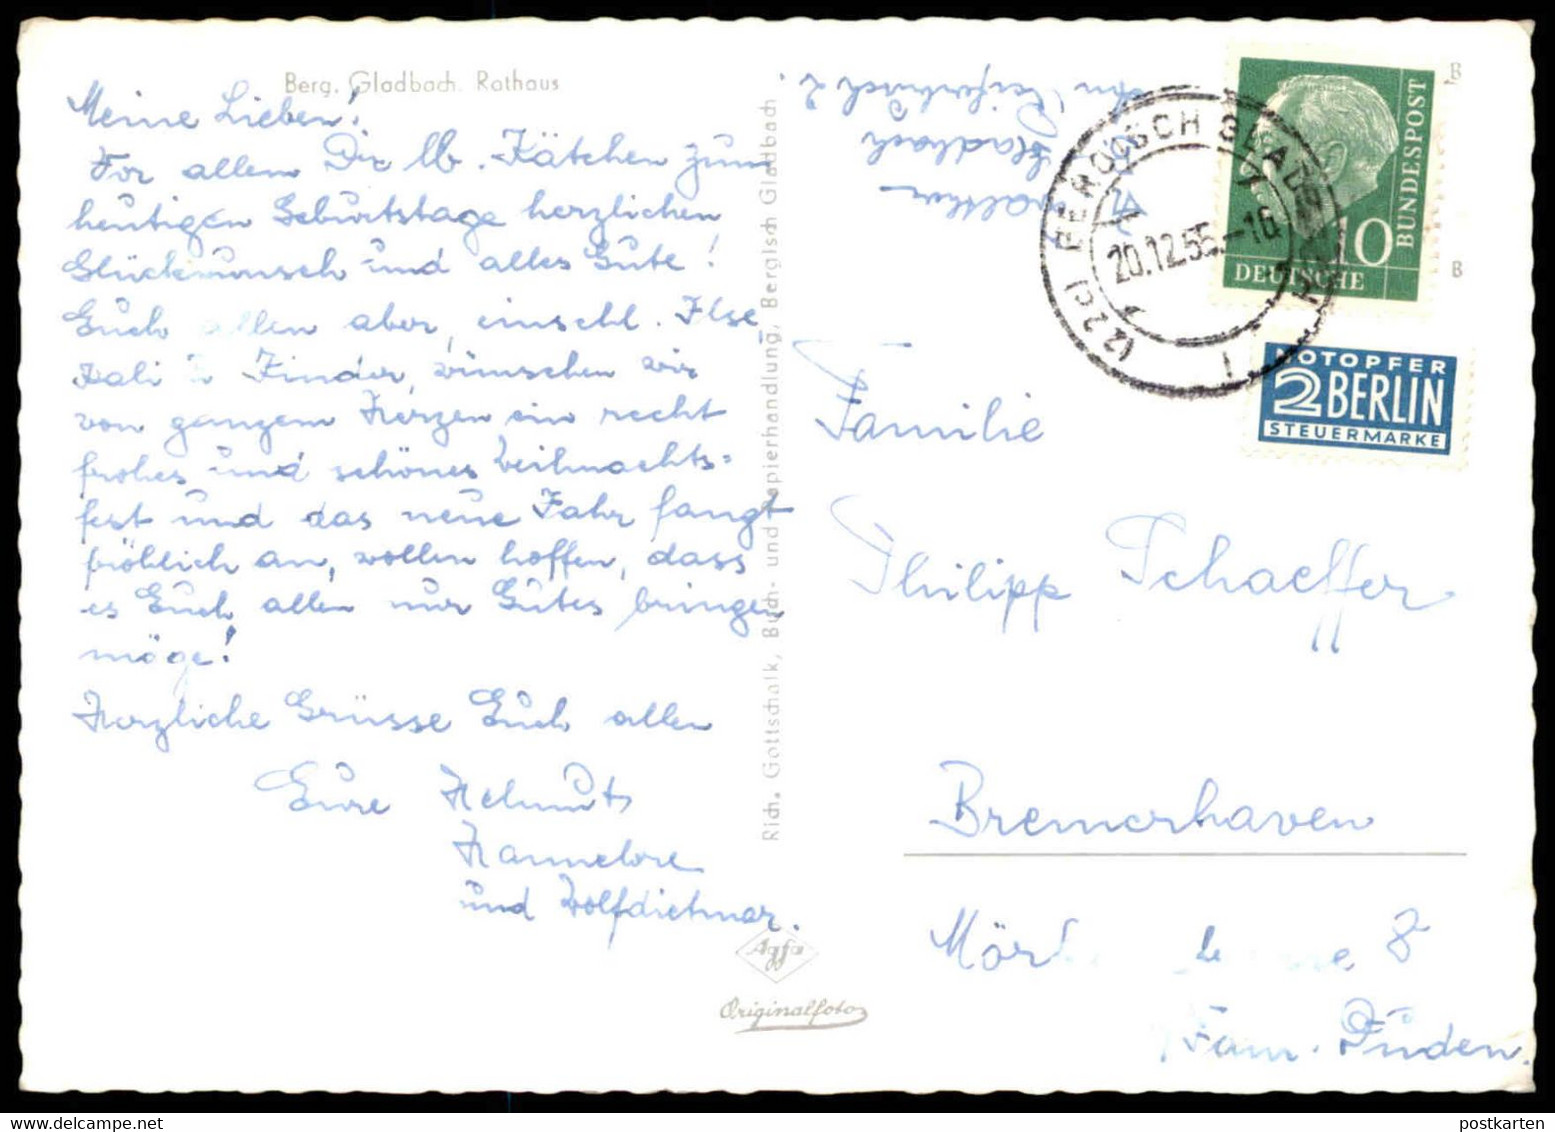 Berg. Gladbach. Rathaus
Meine Lieben!
Vor allem Dir lb. Kätchen zum
heutigen Geburtstage herzlichen
Glückwunsch und alles Gute!
Euch allen aber, einschl. Ilse,
Kinder, wünschen wir
von ganzem Herzen ein recht
frohes und schönes Weihnachts=
fest und das neue Jahr fangt
fröhlich an, wollen hoffen, dass
es Euch allen nur Gutes bringen
möge!
Herzliche Grüsse Euch allen
Eure Helmuts
Hannelore
und Wolfdietmar.
Agfa
Originalfoto
Rich. Gottschalk, Buch- und Papierhandlung, Bergisch Gladbach
Gladbach
(22c) BERGISCH GLADBACH
20.12.55.-16
1
10
DEUTSCHE
BUNDESPOST
B
B
NOTOPFER
2 BERLIN
STEUERMARKE
Familie
Philipp Schaeffer
Bremerhaven
8
Fam. Duden.
postkarten